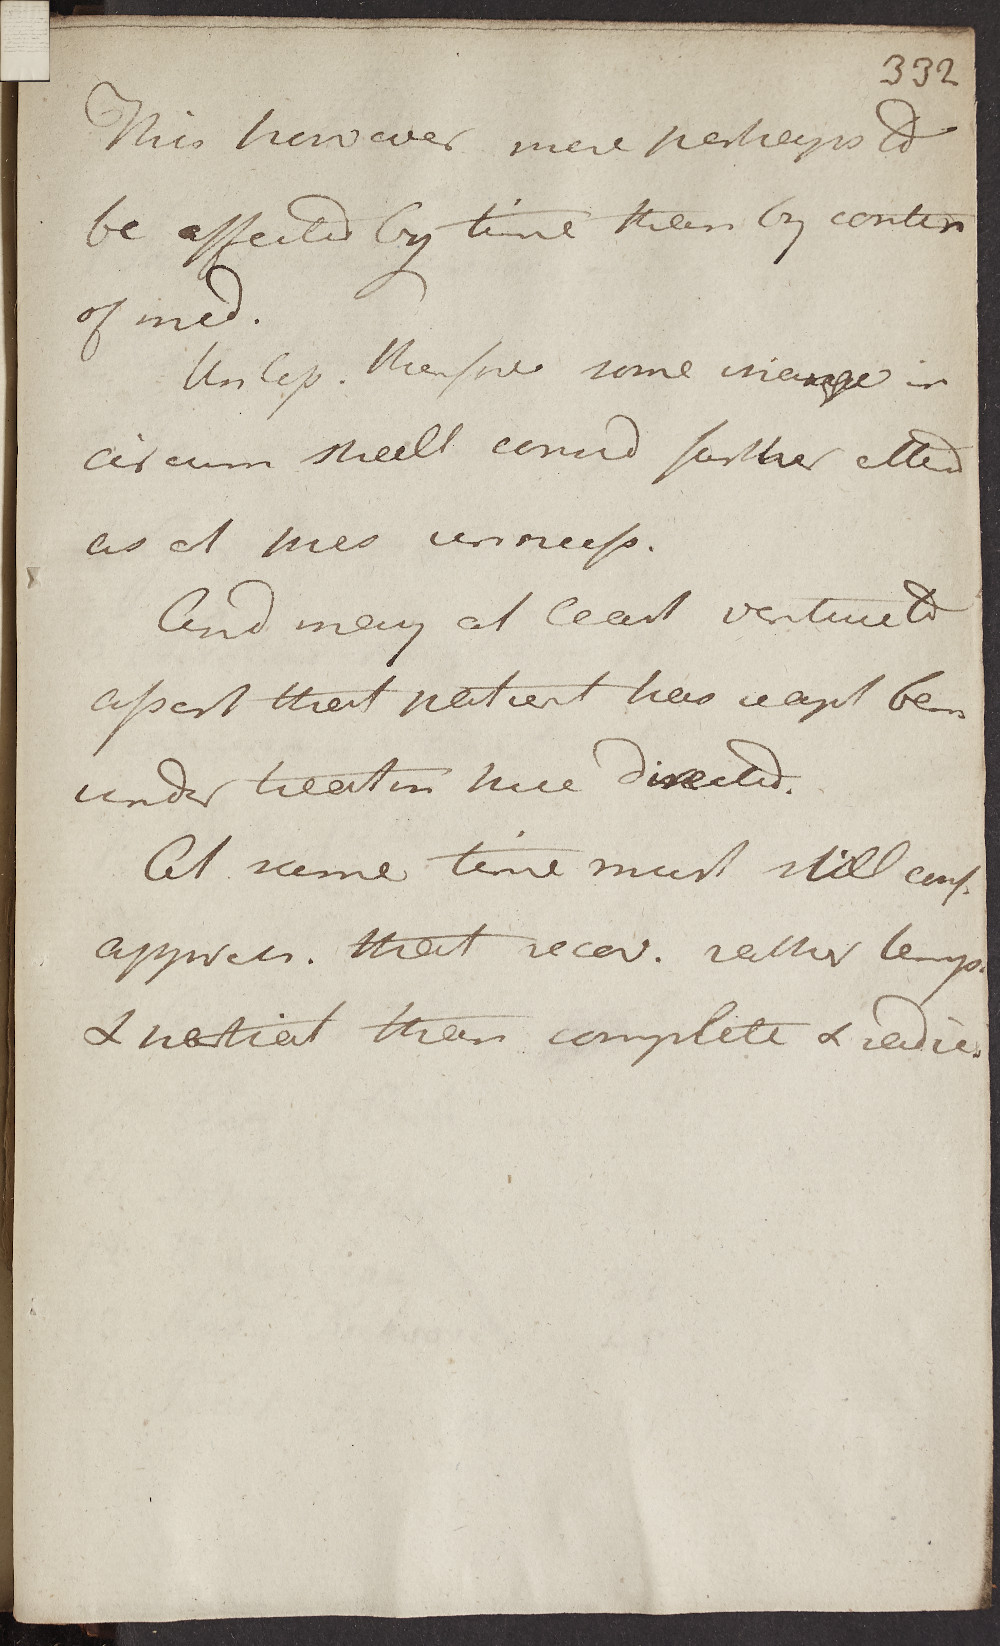 332
This however more perhaps to
be affected by time than by contin
of med.
Unless. therefore some change in
circum shall
further attend
as at pres unnecess.
And may at least venture to
assert that patient has
been
under treatm here directed.
At same time must still conf.
appreh. that recov. rather temp.
& partial than complete & radic.